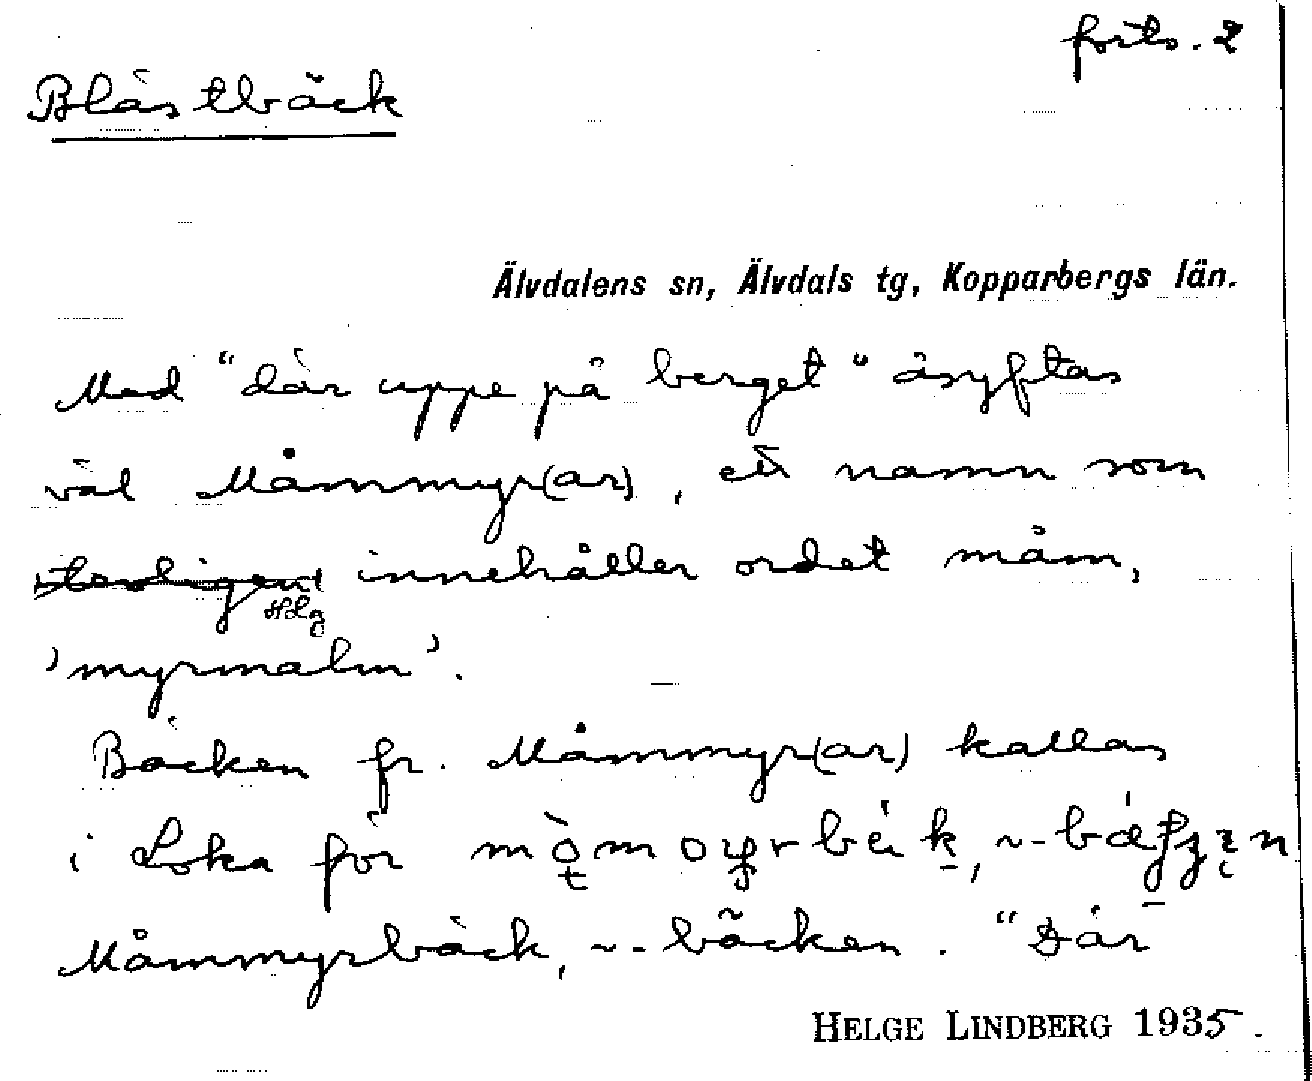 forts. 2
Blästbäck
Älvdalens sn, Älvdals tg, Kopparbergs län.
Med "där uppe på berget" åsyftas
väl Måmmyr(ar), ett namn som
innehåller ordet måm,
'myrmalm'.
Bäcken fr. Måmmyr(ar) kallas
i Loka för
Måmmyrbäck, ~-bäcken. "Där
HELGE LINDBERG 1935.